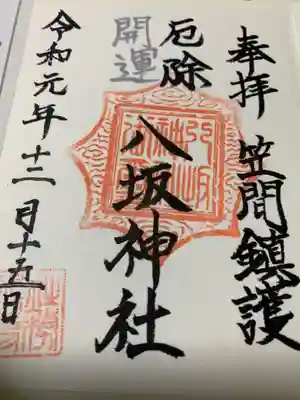 奉拝 笠間鎮護
厄除
開運
八坂神社
令和元年十二月十五日